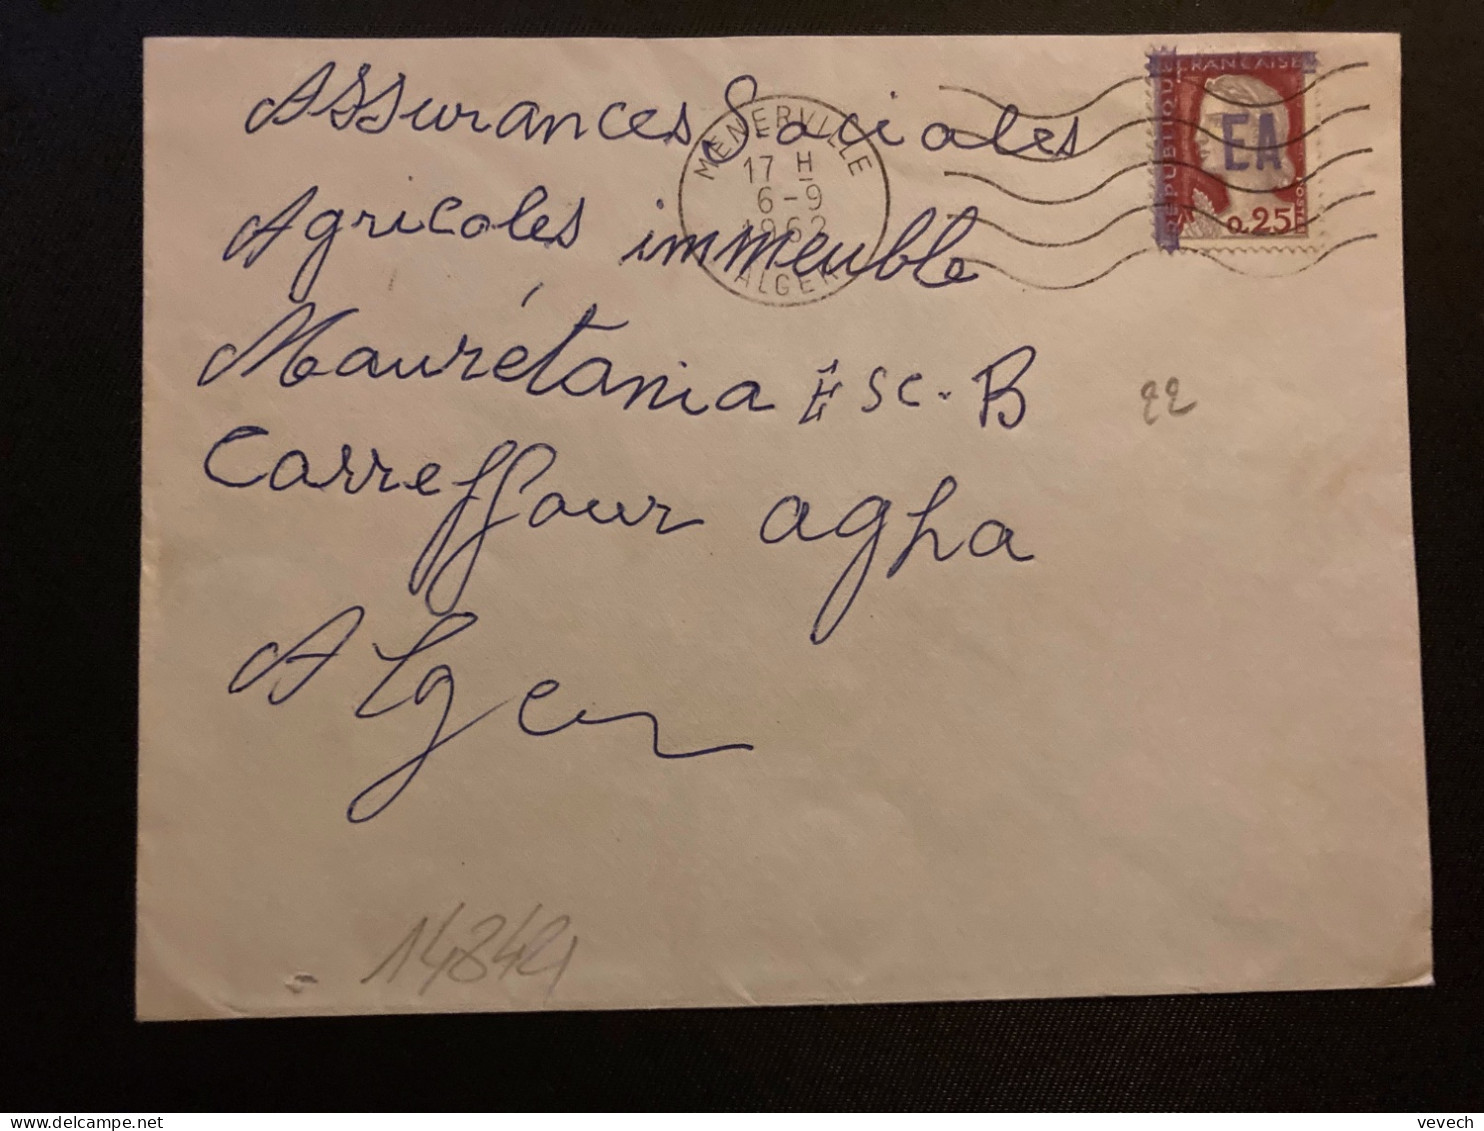 REPUBLIQUE FRANCAISE
EA
0,25
POSTES
MENERVILLE
17 H
6 - 9
1962
ALGER
Assurances Sociales
Agricoles immeuble
Maurétania Esc. B
Carreffour agha
Alger
22
vevech